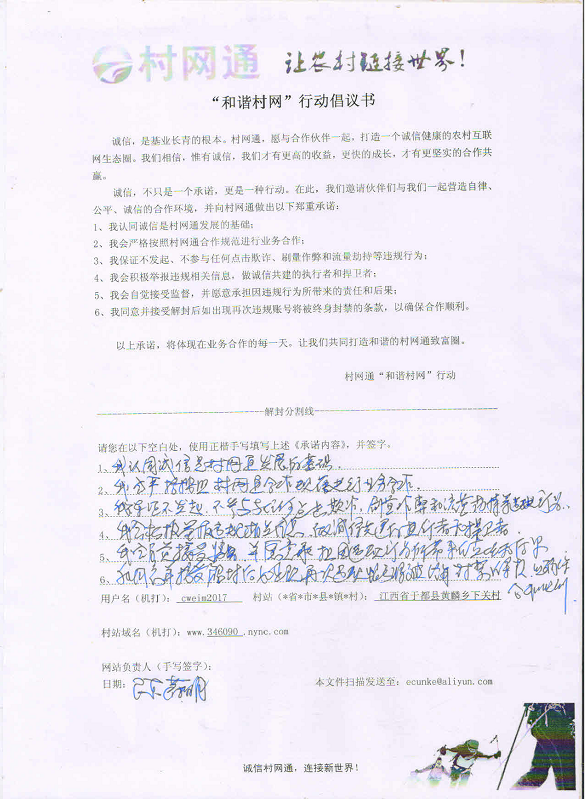 村网通 让农村链接世界!
“和谐村网”行动倡议书
诚信,是基业长青的根本。村网通,愿与合作伙伴一起,打造一个诚信健康的农村互联
网生态圈。我们相信,惟有诚信,我们才有更高的收益,更快的成长,才有更坚实的合作共
赢。
诚信,不只是一个承诺,更是一种行动。在此,我们邀请伙伴们与我们一起营造自律、
公平、诚信的合作环境,并向村网通做出以下郑重承诺:
1、我认同诚信是村网通发展的基础;
2、我会严格按照村网通合作规范进行业务合作;
3、我保证不发起、不参与任何点击欺诈、刷量作弊和流量劫持等违规行为;
4、我会积极举报违规相关信息,做诚信共建的执行者和捍卫者;
5、我会自觉接受监督,并愿意承担因违规行为所带来的责任和后果;
6、我同意并接受解封后如出现再次违规账号将被终身封禁的条款,以确保合作顺利。
以上承诺,将体现在业务合作的每一天。让我们共同打造和谐的村网通致富圈。
村网通“和谐村网”行动
解封分割线
请您在以下空白处,使用正楷手写填写上述《承诺内容》,并签字。
1、我认同诚信是村网通发展的基础.
2、我会严格按照村网通合作规范进行业务合作.
3、我保证不发起、不参与任何点击欺诈,
4、我会积极举报违规相关信息,做诚信共建的执行者和捍卫者.
5、我会自觉接受监督,并愿意承担因违规行为所带来的责任和后果
6、我同意并接受解封后如出现再次违规账号将被终身封禁的条款,以确保
合作顺利
用户名(机打): cweim2017 村站(*省*市*县*镇*村): 江西省于都县黄麟乡下关村
村站域名(机打):www.346090.nync.com
网站负责人(手写签字):
日期:
本文件扫描发送至:ecunke@aliyun.com
诚信村网通,连接新世界!